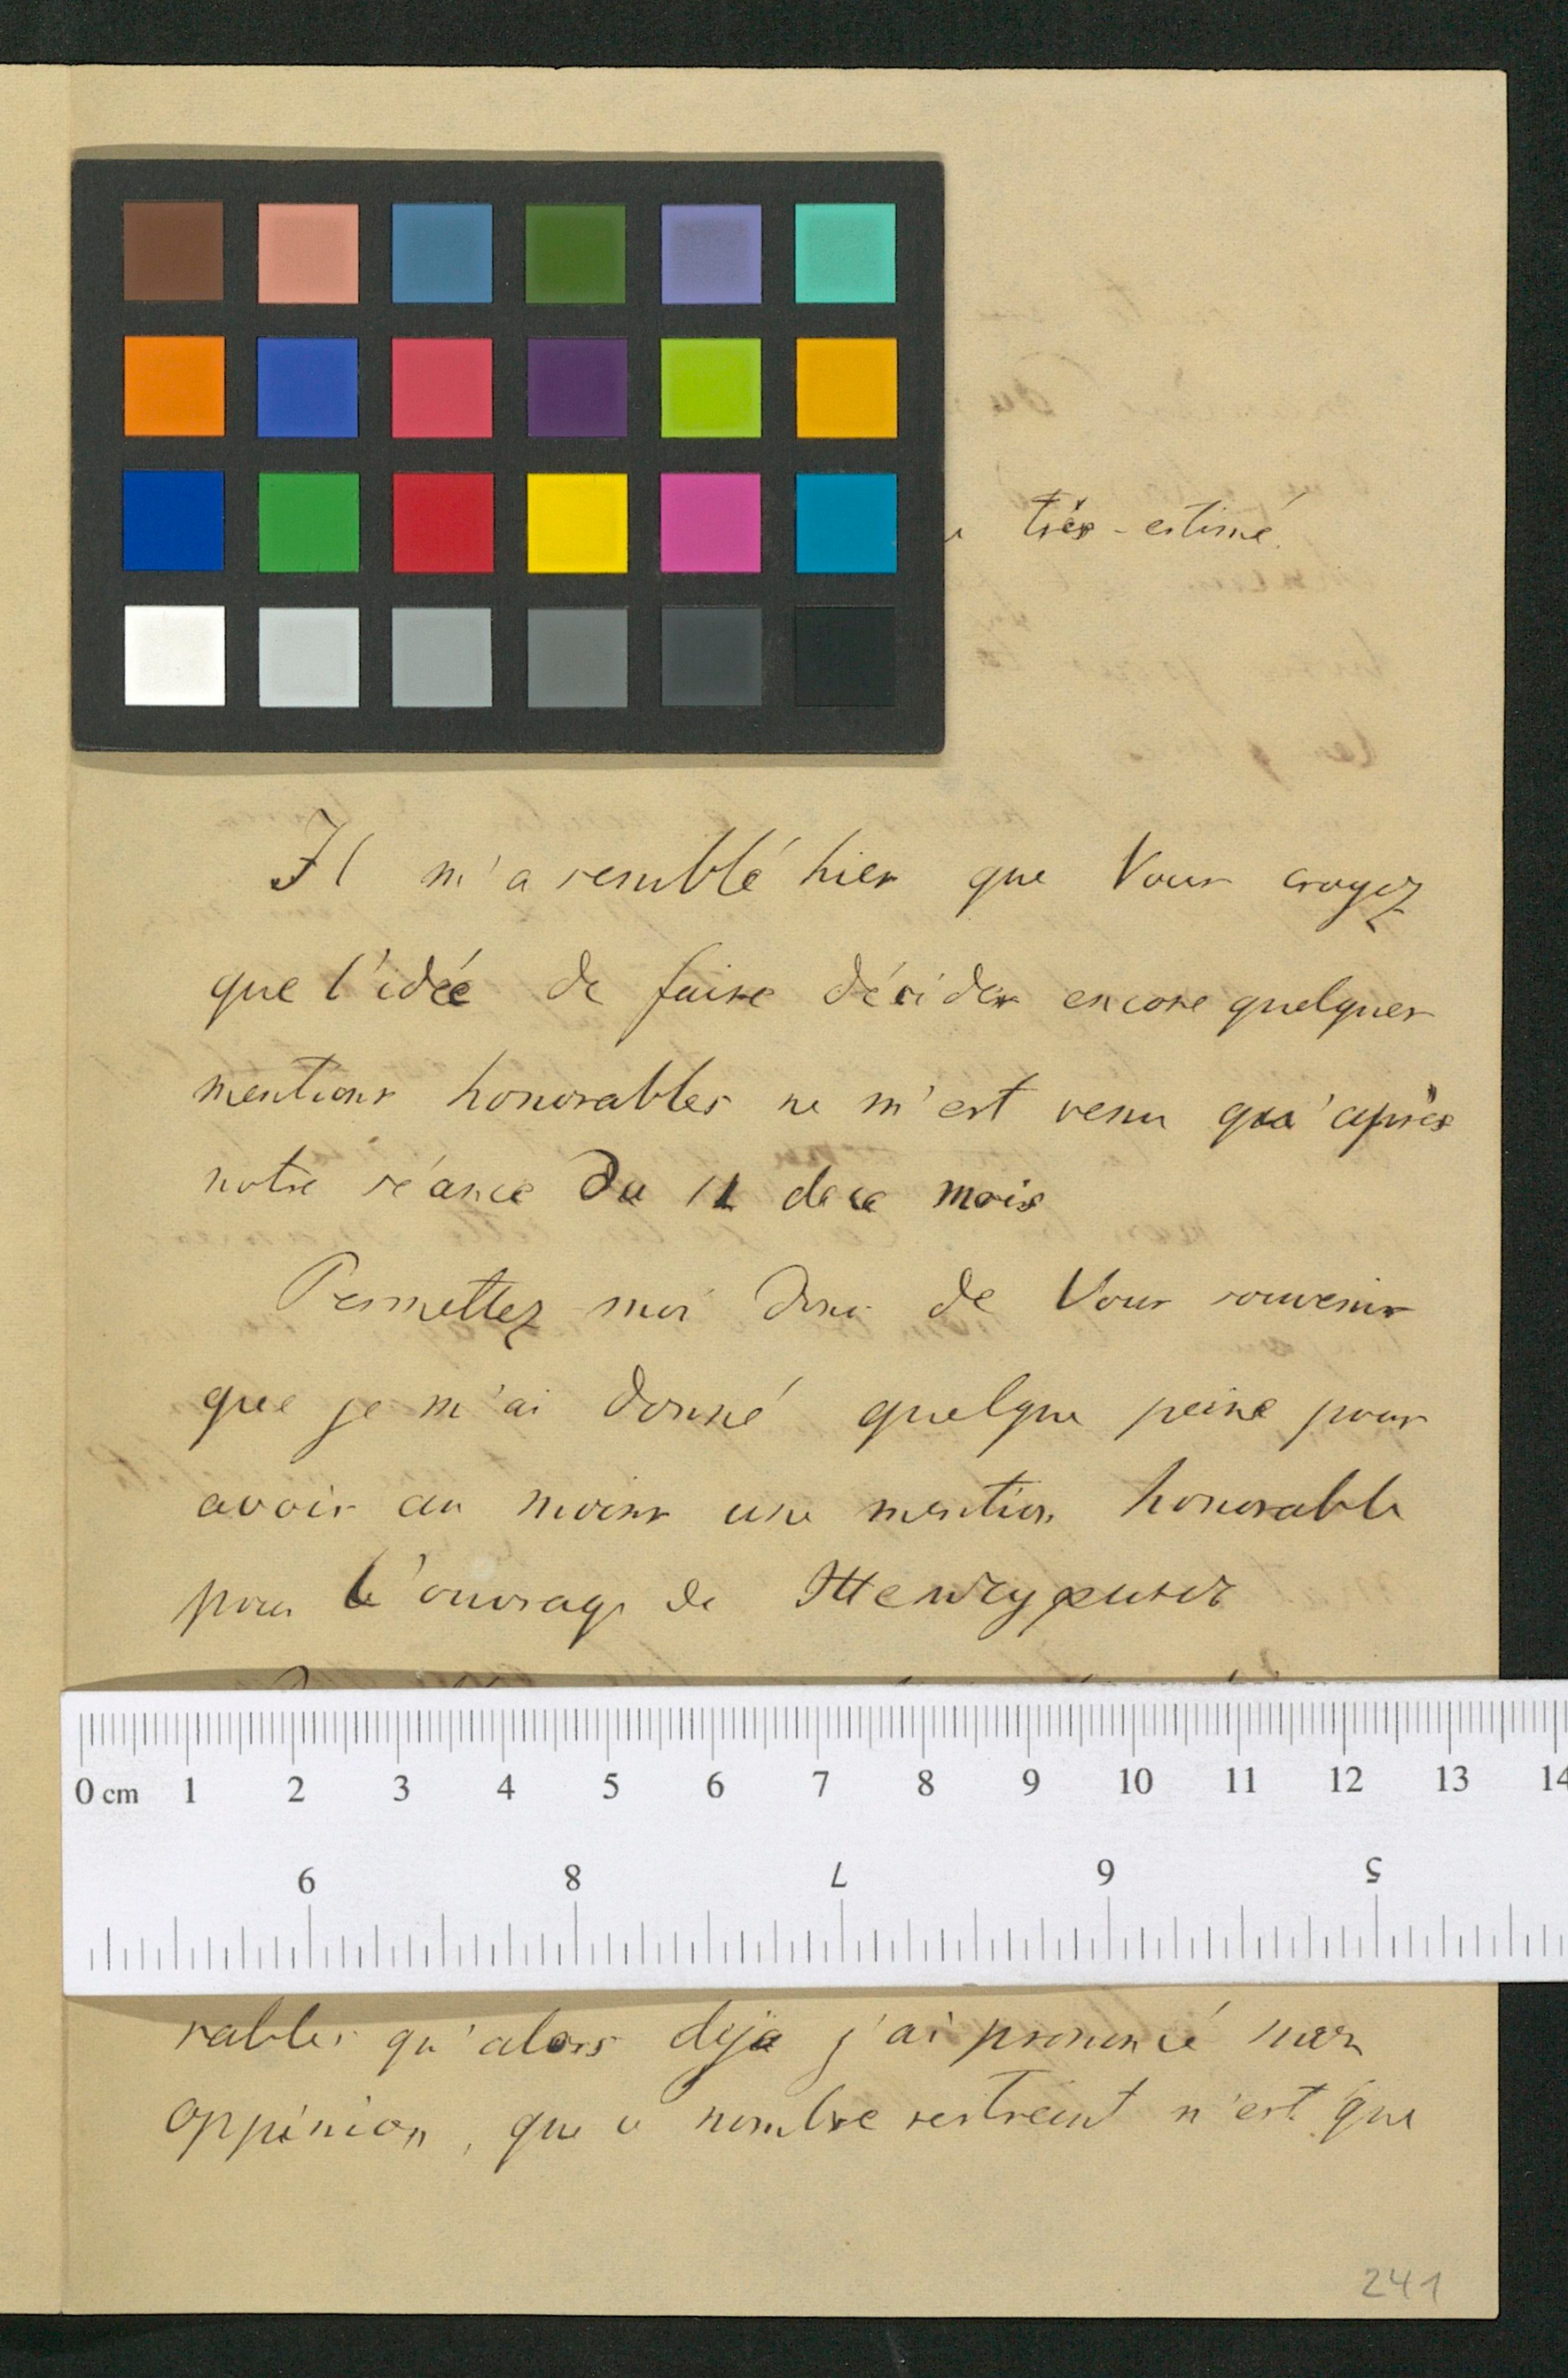 très-estimé.
Il m'a semblé hier que Vous croyez
que l'idée de faire décider encore quelques
mentions honorables ne m'est venu qu'après
notre séance du 11 de ce mois
Permettez moi donc de Vous souvenir
que je m'ai donné quelque peine pour
avoir au moins une mention honorable
pour l'ouvrage de
0 cm 1 2 3 4 5 6 7 8 9 10 11 12 13 14
9 8 7 6 5
rables qu'alors deja j'ai prononcé mon
oppinion, que ce nombre restreint n'est que
241